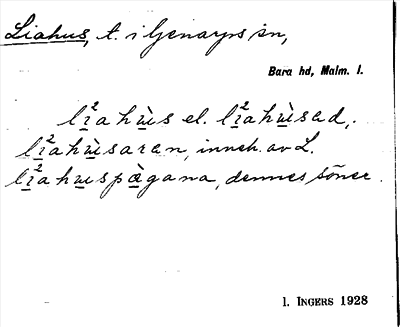 Liahus, t. i Genarps sn,
Bara hd, Malm. l.
lı̱²ahù̱s el. lı̱²ahù̱sad,.
lı̱²ahù̱saran, inneh. av L.
lı̱²ahu̱spà̱gana, dennes söner.
I. INGERS 1928